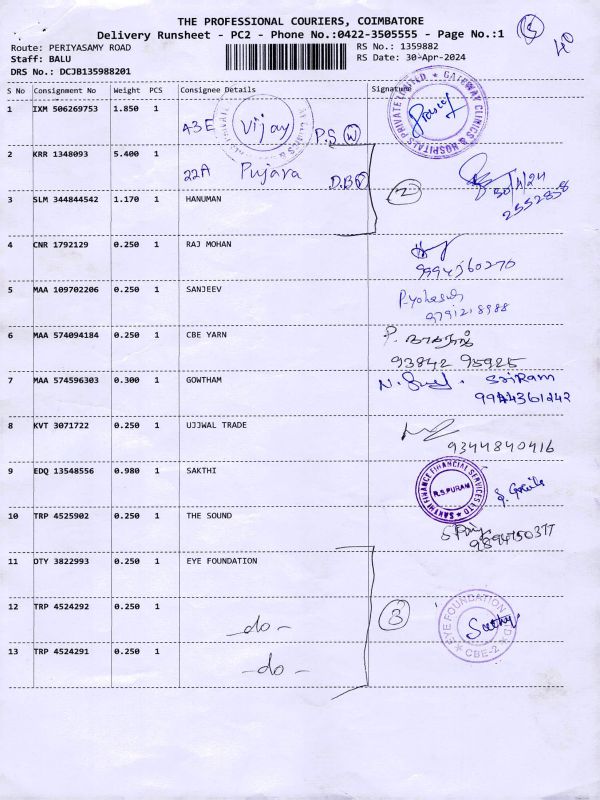 THE PROFESSIONAL COURIERS, COIMBATORE
Delivery Runsheet - PC2 - Phone No.:0422-3505555 - Page No.:1
Route: PERIYASAMY ROAD
Staff: BALU
DRS No.: DCJB135988201
RS No.: 1359882
RS Date: 30-Apr-2024
S No Consignment No Weight PCS Consignee Details Signature
1 IXM 506269753 1.850 1 43E Vijay P.S W
GATEWAY CLINICS & HOSPITALS PRIVATE LIMITED
2 KRR 1348093 5.400 1 22A Pujara D.B
2 30/4/24
2552838
3 SLM 344844542 1.170 1 HANUMAN
4 CNR 1792129 0.250 1 RAJ MOHAN
9994360270
5 MAA 109702206 0.250 1 SANJEEV
9791218988
6 MAA 574094184 0.250 1 CBE YARN
93842 95925
7 MAA 574596303 0.300 1 GOWTHAM
SriRam
9944361242
8 KVT 3071722 0.250 1 UJJWAL TRADE
9344840416
9 EDQ 13548556 0.980 1 SAKTHI
SAKTHI FINANCE FINANCIAL SERVICES LTD
R.S.PURAM
10 TRP 4525902 0.250 1 THE SOUND
11 DTY 3822993 0.250 1 EYE FOUNDATION
12 TRP 4524292 0.250 1 -do-
3
EYE FOUNDATION
CBE-2
Sathy
13 TRP 4524291 0.250 1 -do-